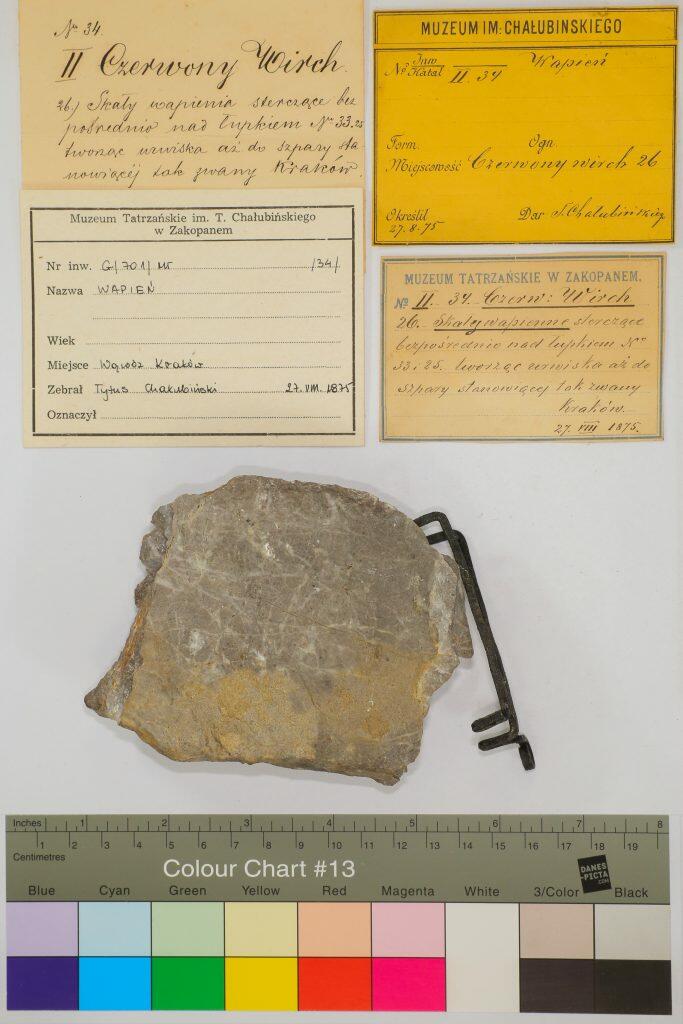 Nr 34.
II Czerwony Wirch.
26.) Skały wapienia sterczące bez
pośrednio nad łupkiem Nr 33.25
tworząc urwiska aż do szpary sta-
nowiącéj tak zwany Kraków.
MUZEUM IM: CHAŁUBINSKIEGO
No Inw Katal II. 34 Wapień
Form. Ogn.
Miejscowość Czerwony wirch 26
Określił Dar T. Chałubińskieg
27.8.75
Muzeum Tatrzańskie im. T. Chałubińskiego
w Zakopanem
Nr inw. G/701/M /34/
Nazwa WAPIEŃ
Wiek
Miejsce Wąwóz Kraków
Zebrał Tytus Chałubiński 27.VIII.1875
Oznaczył
MUZEUM TATRZAŃSKIE W ZAKOPANEM.
No II. 34. Czerw: Wirch
26. Skały wapienne sterczące
bezpośrednio nad łupkiem No
33 i 25. tworząc urwiska aż do
szpary stanowiącej tak zwany
Kraków.
27. VIII 1875.
Inches 1 2 3 4 5 6 7 8
Centimetres 1 2 3 4 5 6 7 8 9 10 11 12 13 14 15 16 17 18 19
Colour Chart #13
DANES
-PICTA
.COM
Blue Cyan Green Yellow Red Magenta White 3/Color Black